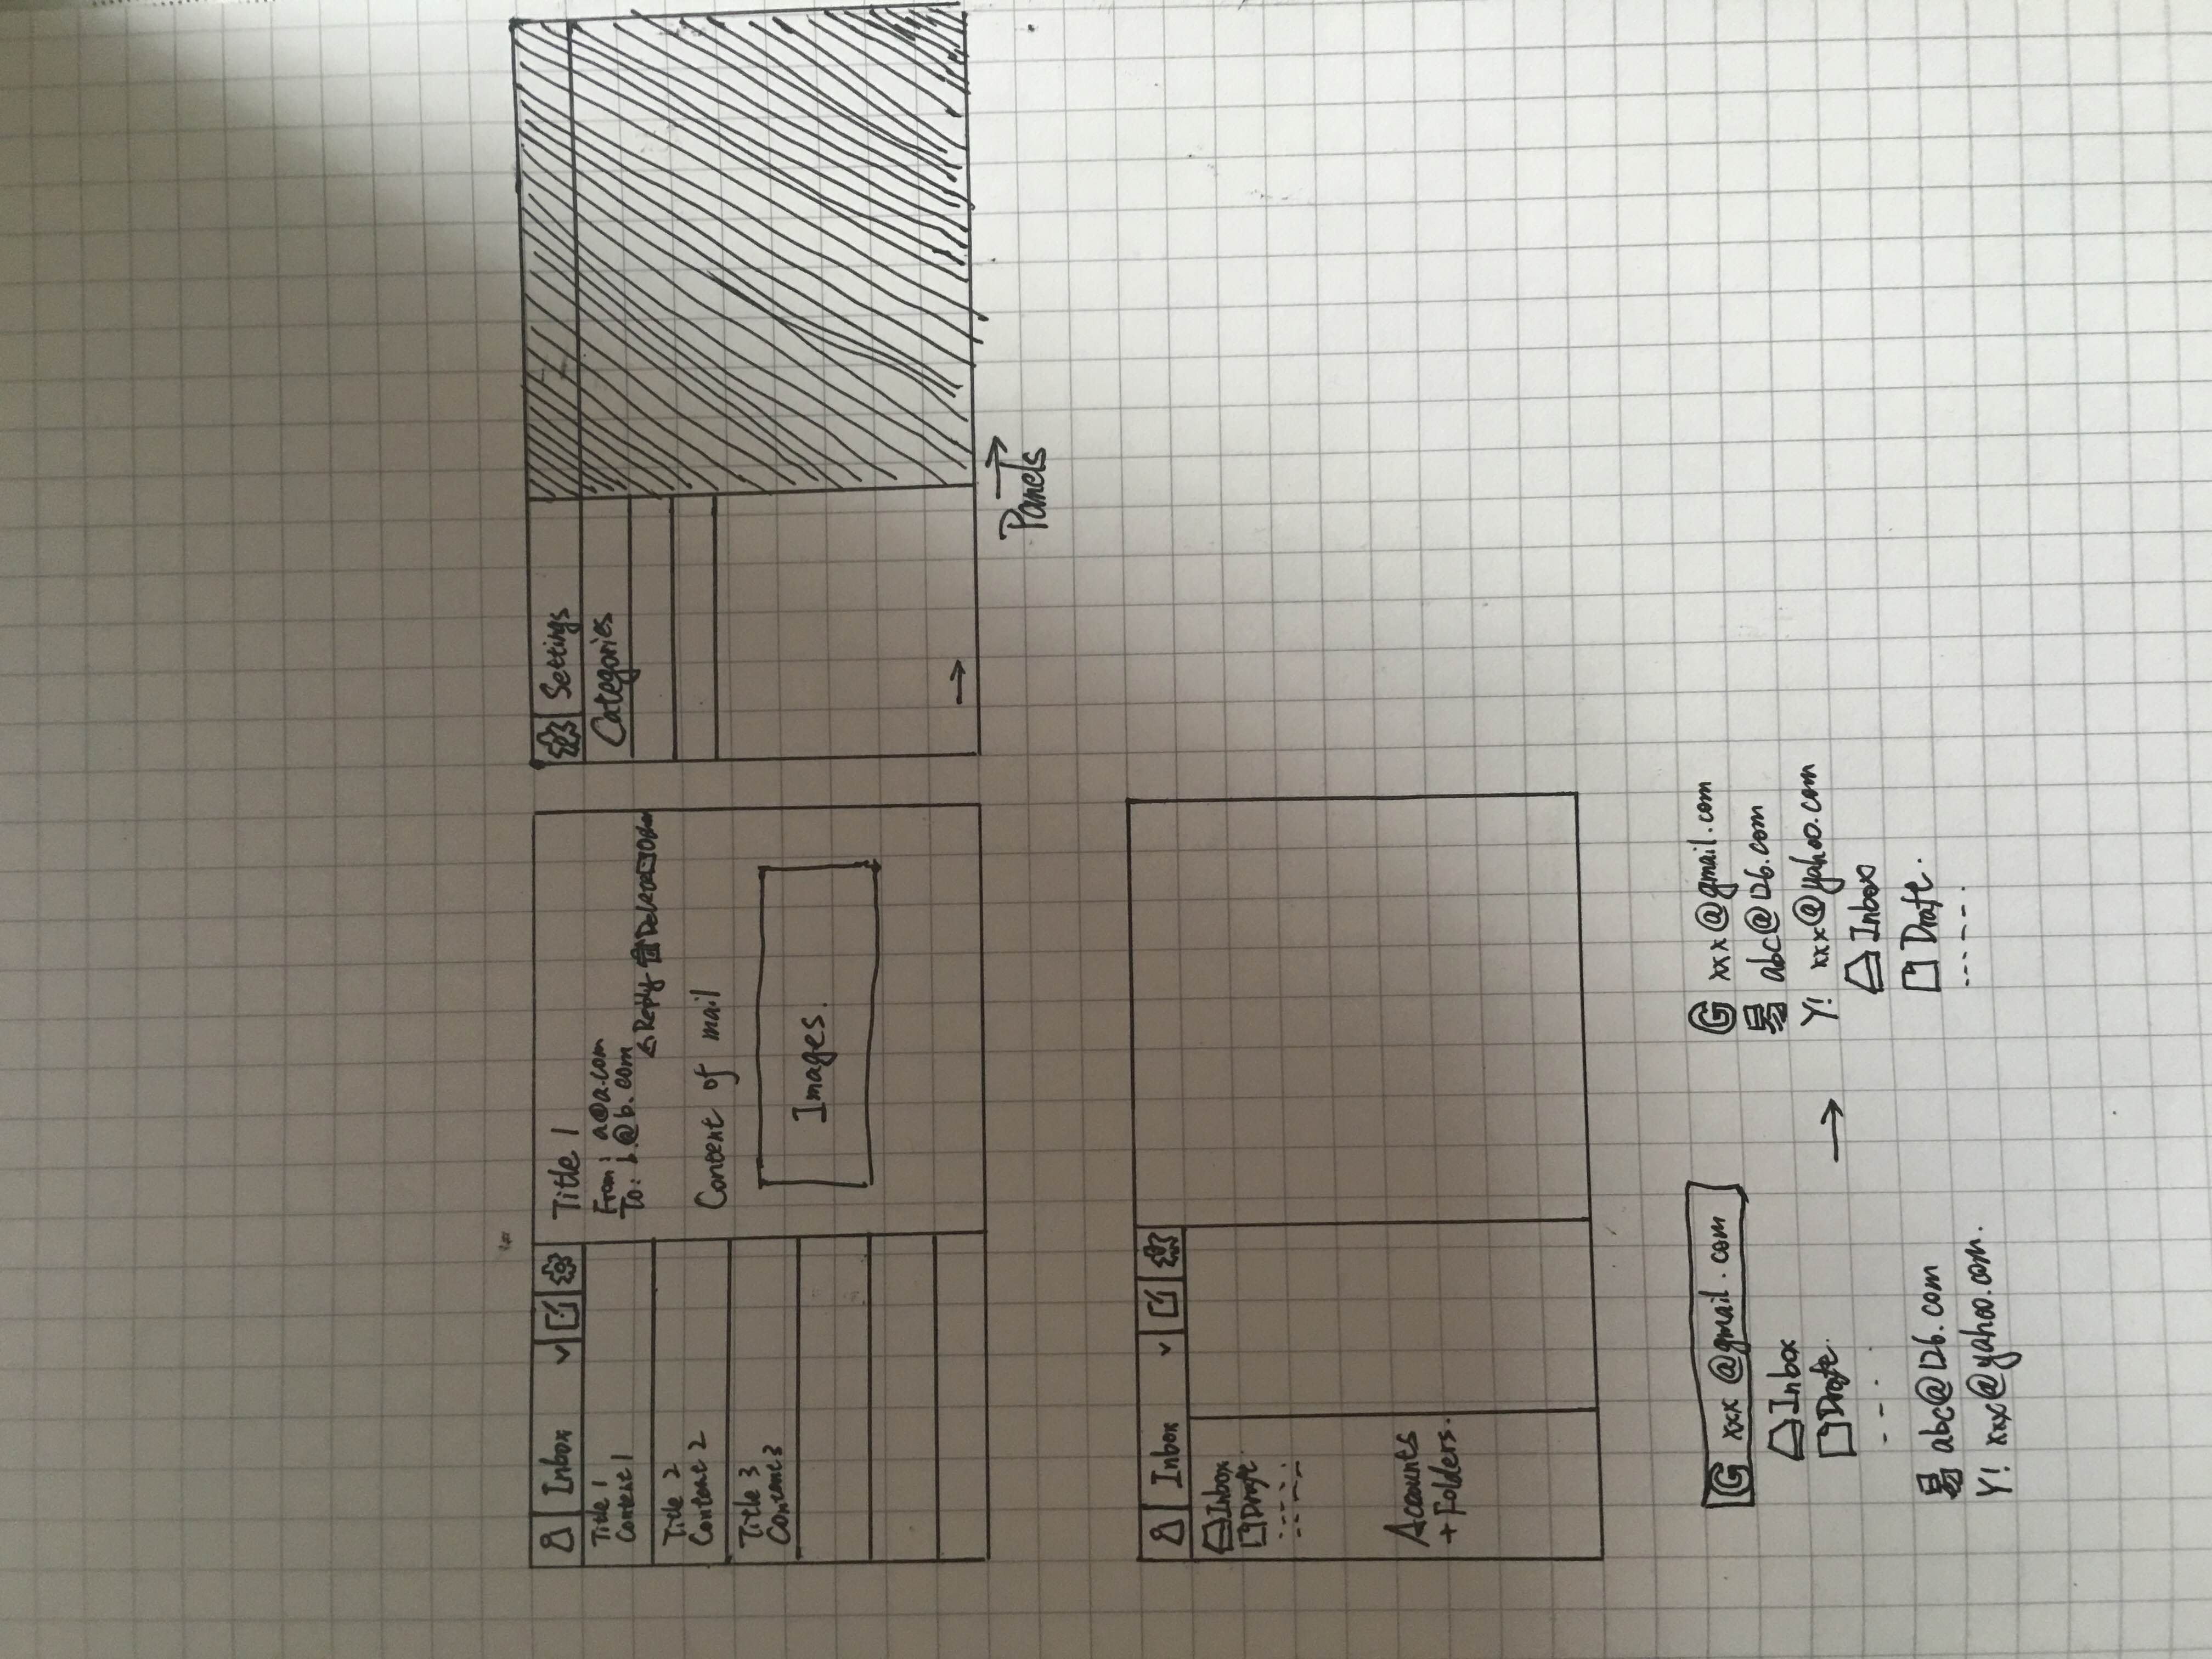 Inbox
Title 1
Content 1
Title 2
Content 2
Title 3
Content 3
Title 1
From: a@a.com
To: b@b.com
Reply Delete Other
Content of mail
Images.
Settings
Categories
Panels
Inbox
Inbox
Draft
Accounts
+ Folders.
G xxx @gmail.com
Inbox
Draft.
易 abc@126.com
Y! xxx@yahoo.com.
G xxx@gmail.com
易 abc@126.com
Y! xxx@yahoo.com
Inbox
Draft.